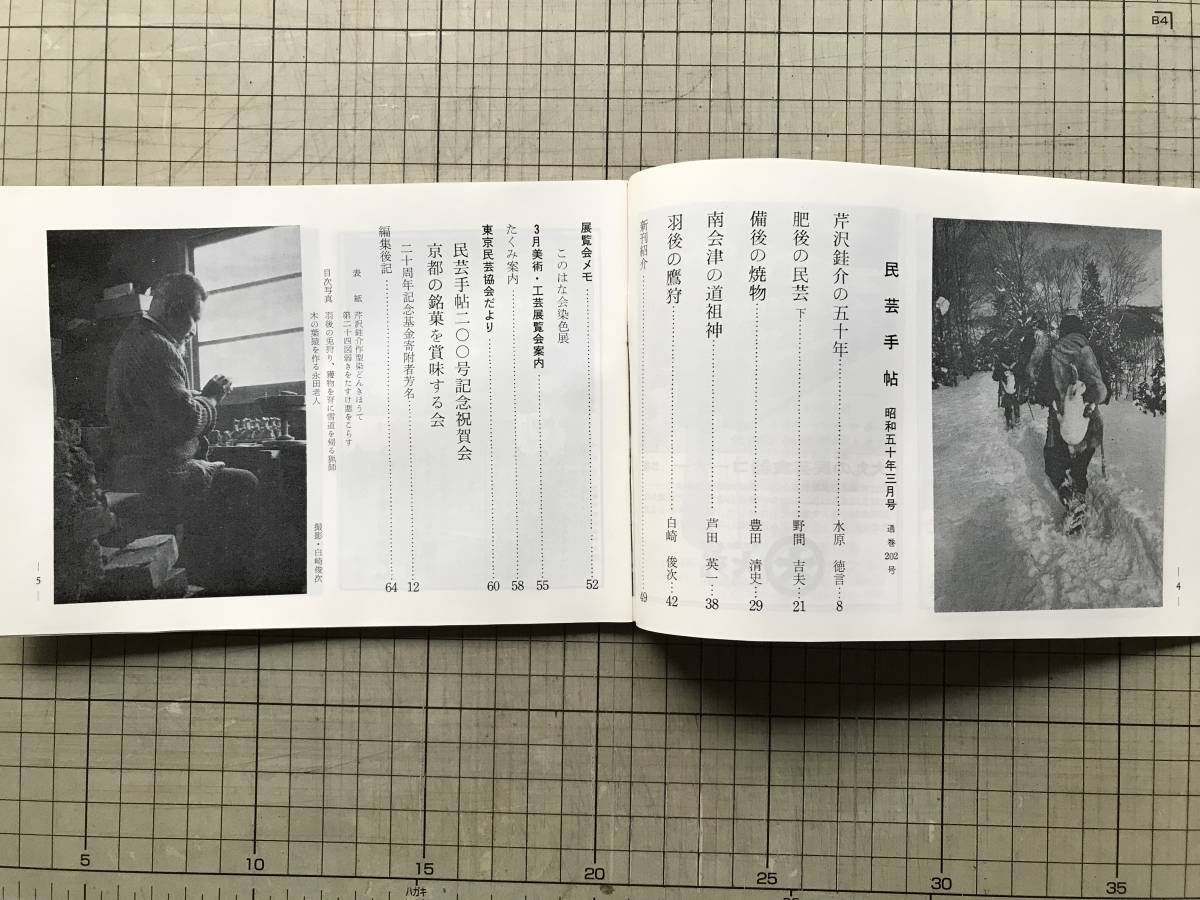 民芸手帖 昭和五十年三月号 通巻202号
芹沢銈介の五十年 水原 徳言 8
肥後の民芸 下 野間 吉夫 21
備後の焼物 豊田 清史 29
南会津の道祖神 芦田 英一 38
羽後の鷹狩 白崎 俊次 42
新刊紹介 49
— 4 —
展覧会メモ 52
このはな会染色展
3月美術・工芸展覧会案内 55
たくみ案内 58
東京民芸協会だより 60
民芸手帖二〇〇号記念祝賀会
京都の銘菓を賞味する会
二十周年記念基金寄附者芳名 12
編集後記 64
表紙 芹沢銈介作型染どんきほうて
第二十四図弱きをたすけ悪をこらす
目次写真 羽後の兎狩り、獲物を背に雪道を帰る猟師
木の葉猿を作る永田老人
撮影・白崎俊次
— 5 —
B4
5
10
15
20
25
30
35
ハガキ